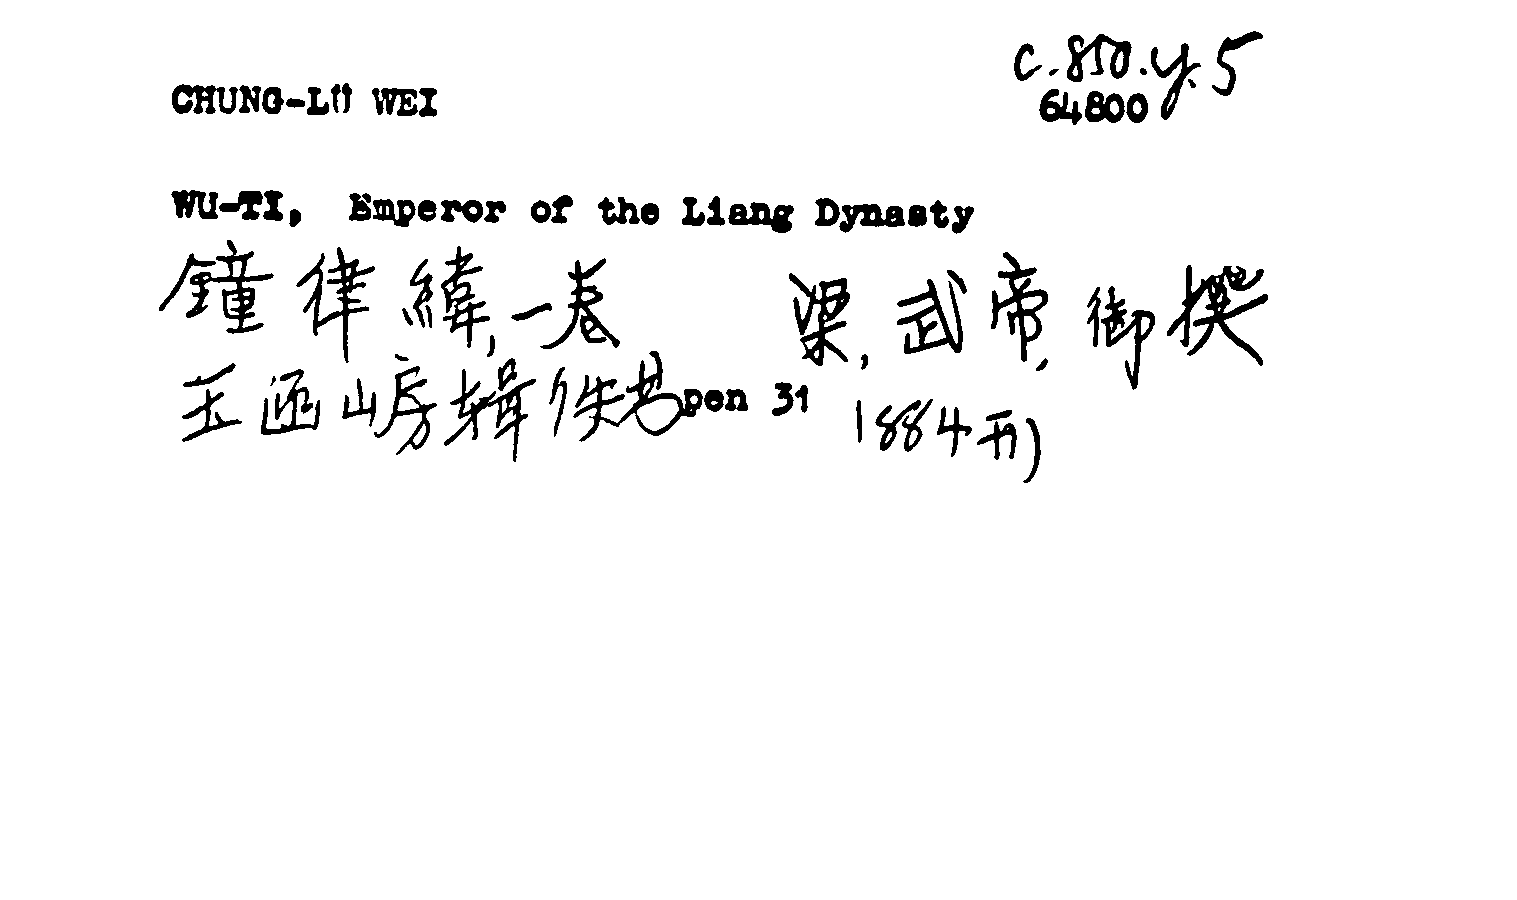 c.850.y.5
CHUNG-LÜ WEI
64800
WU-TI, Emperor of the Liang Dynasty
鐘律緯, 一卷 梁, 武帝, 御撰
玉函山房輯佚書 pen 31 1884刊)